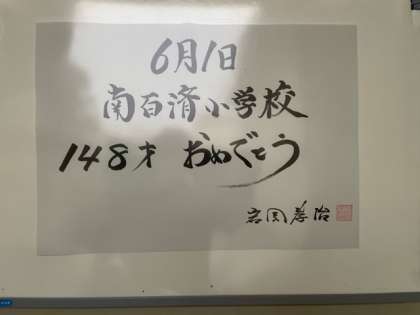 6月1日
南百済小学校
148才 おめでとう